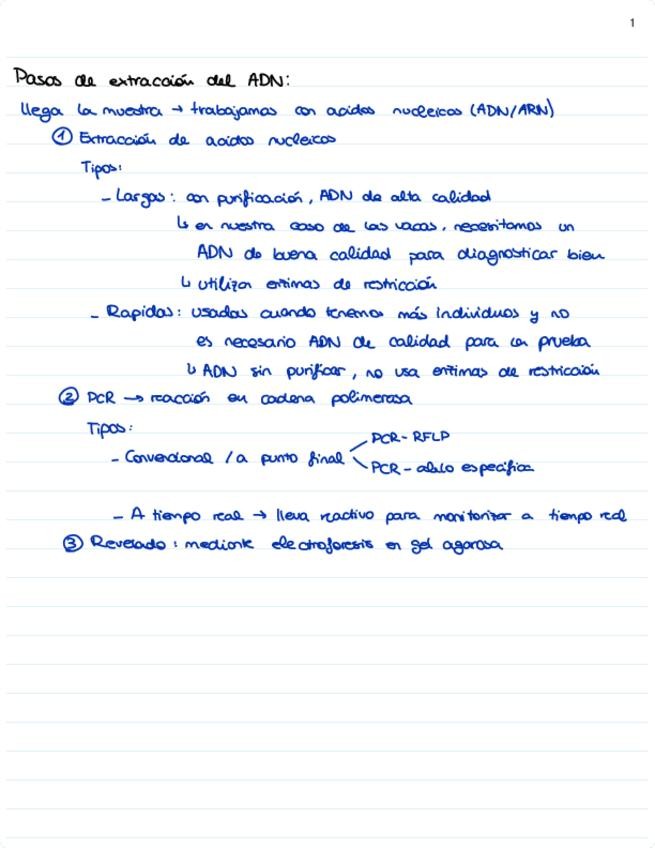 1
Pasos de extracción del ADN:
llega la muestra → trabajamos con acidos nucleicos (ADN/ARN)
① Extracción de acidos nucleicos
Tipos:
- Largas: con purificación, ADN de alta calidad
↳ en nuestra caso de las vacas, necesitamos un
ADN de buena calidad para diagnosticar bien
↳ utilizar enzimas de restricción
- Rapidas: usadas cuando tenemos más individuos y no
es necesario ADN de calidad para la prueba
↳ ADN sin purificar, no usa enzimas de restricción
② PCR → reacción en cadena polimerasa
Tipos:
- Convencional / a punto final
PCR-RFLP
PCR-alelo específica
- A tiempo real → lleva reactivo para monitorizar a tiempo real
③ Revelado: mediante electroforesis en gel agarosa